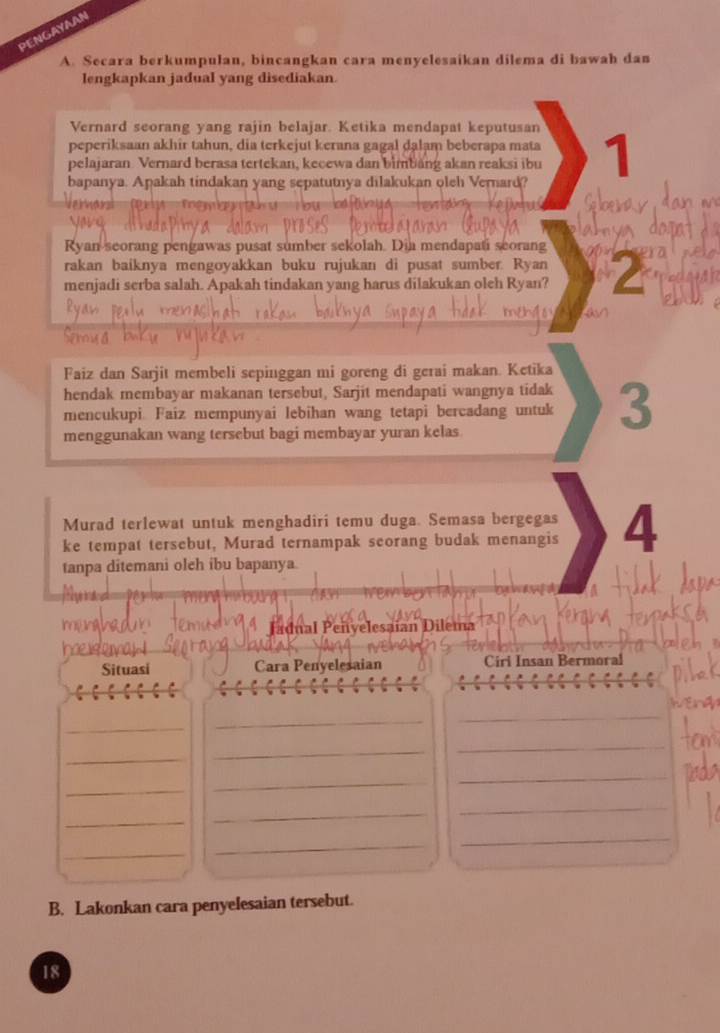 PENGAYAAN
A. Secara berkumpulan, bincangkan cara menyelesaikan dilema di bawah dan
lengkapkan jadual yang disediakan.
Vernard seorang yang rajin belajar. Ketika mendapat keputusan
peperiksaan akhir tahun, dia terkejut kerana gagal dalam beberapa mata
pelajaran. Vernard berasa tertekan, kecewa dan bimbang akan reaksi ibu
bapanya. Apakah tindakan yang sepatutnya dilakukan oleh Vernard?
1
Vernard perlu memberitahu ibu bapanya tentang keputusan sebenar dan
yang dihadapinya dalam proses pembelajaran supaya masalahnya dapat
Ryan seorang pengawas pusat sumber sekolah. Dia mendapati seorang
rakan baiknya mengoyakkan buku rujukan di pusat sumber. Ryan
menjadi serba salah. Apakah tindakan yang harus dilakukan oleh Ryan?
2
Ryan perlu menasihati rakan baiknya supaya tidak mengoyakkan
semua buku rujukan.
Faiz dan Sarjit membeli sepinggan mi goreng di gerai makan. Ketika
hendak membayar makanan tersebut, Sarjit mendapati wangnya tidak
mencukupi. Faiz mempunyai lebihan wang tetapi bercadang untuk
menggunakan wang tersebut bagi membayar yuran kelas.
3
Murad terlewat untuk menghadiri temu duga. Semasa bergegas
ke tempat tersebut, Murad ternampak seorang budak menangis
tanpa ditemani oleh ibu bapanya.
4
Murad perlu menghubungi dan memberitahu bahawa dia tidak
menghadiri temuduga pada masa yang ditetapkan kerana terpaksa
menemani seorang budak yang menangis terlebih dahulu. Dia boleh
pihak
pada
Jadual Penyelesaian Dilema
Situasi
Cara Penyelesaian
Ciri Insan Bermoral
B. Lakonkan cara penyelesaian tersebut.
18